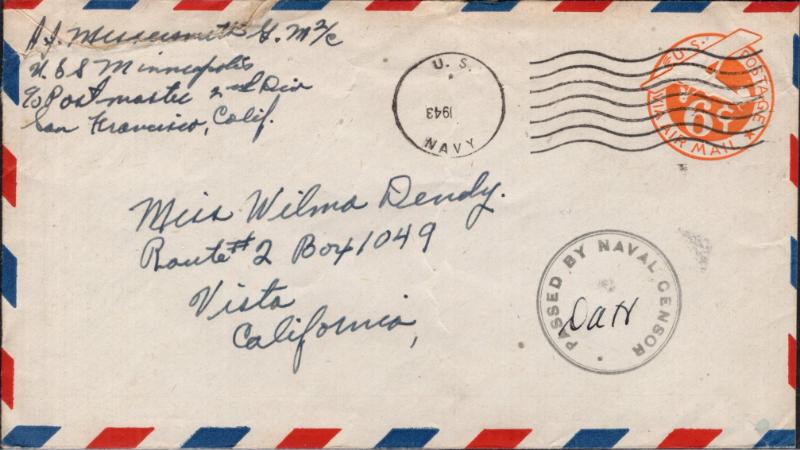 A. J. Messersmith G. M 2/c
U. S S Minneapolis
c/o Postmaster 2nd Div
San Francisco, Calif.
U. S.
1943
NAVY
U. S. POSTAGE
6¢
VIA AIR MAIL
Miss Wilma Dendy.
Route #2 Box 1049
Vista
California,
PASSED BY NAVAL CENSOR